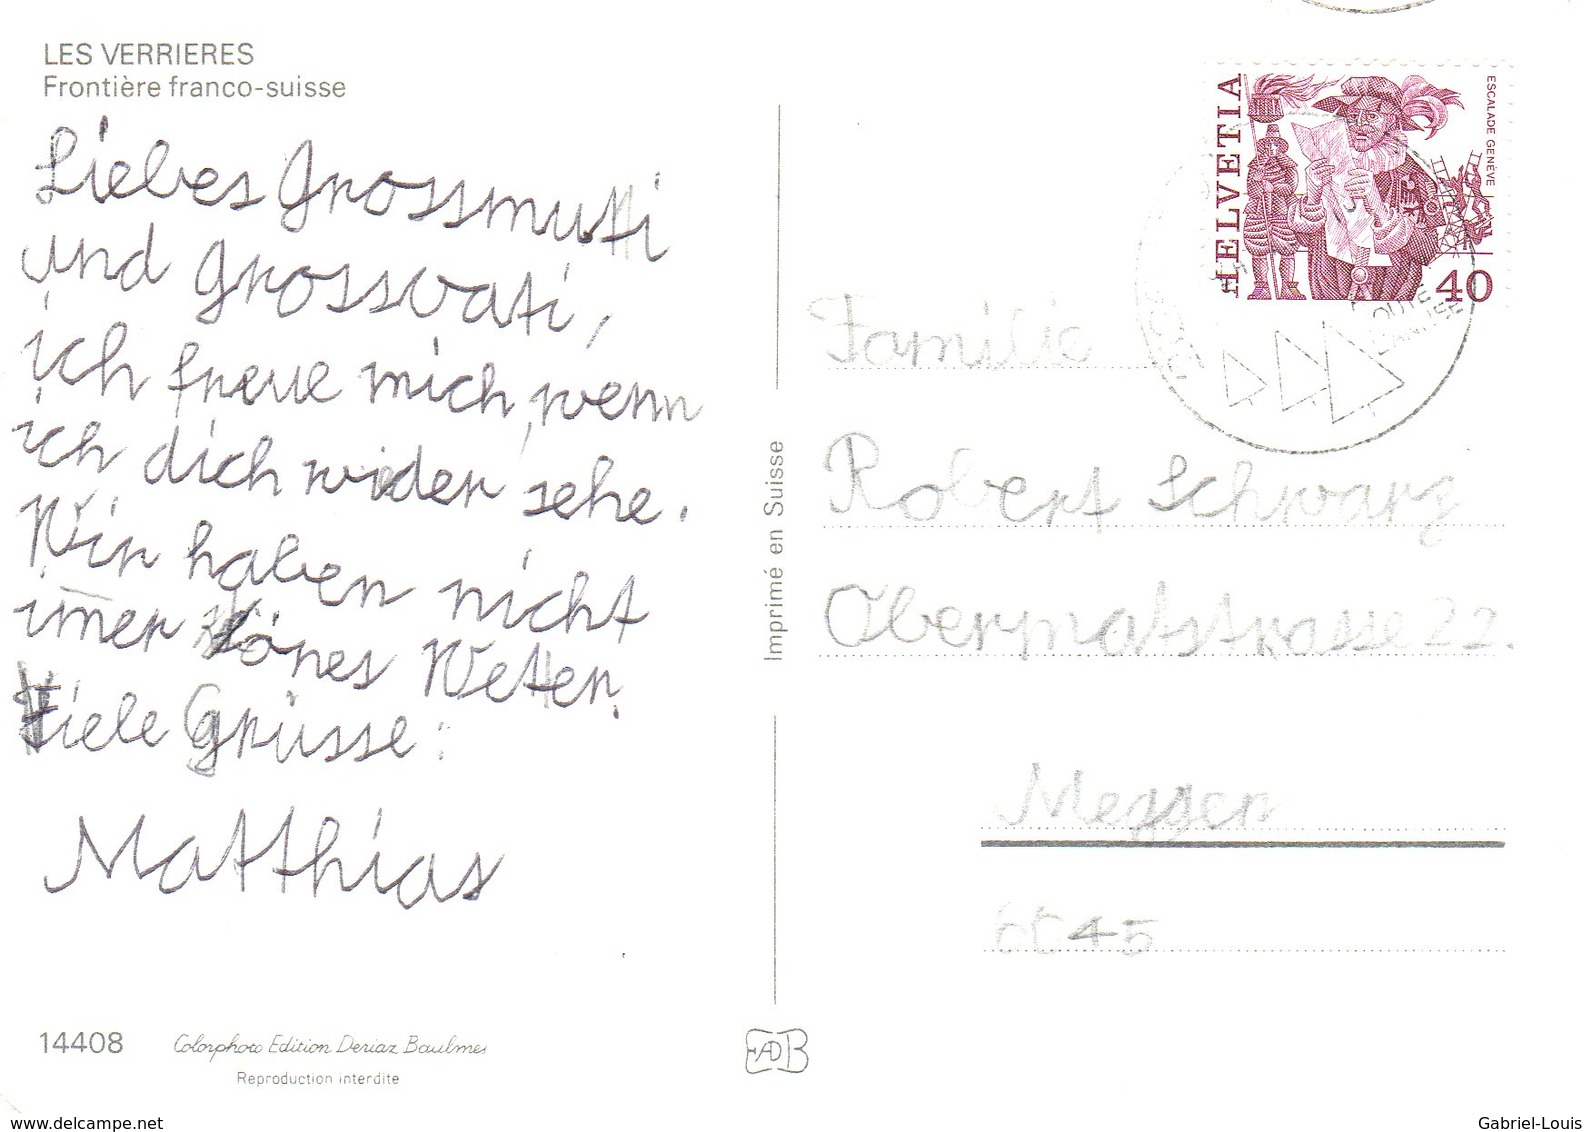 LES VERRIERES
Frontière franco-suisse
Liebes Grossmutti
und Grossvati,
ich freue mich, wenn
ich dich wider sehe.
Wir haben nicht
imer sönes Wetter.
Viele Grüsse:
Matthias
14408
Colorphoto Edition Deriaz Baulmes
Reproduction interdite
Imprimé en Suisse
EDAB
HELVETIA
ESCALADE GENÈVE
40
Familie
Robert Schwarz
Obermatstrasse 22.
Meggen
6045
www.delcampe.net
Gabriel-Louis